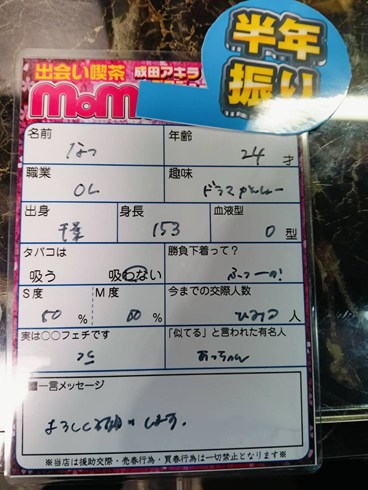 半年
振り
出会い喫茶 成田アキラ
MoM
名前 なつ 年齢 24 才
職業 OL 趣味 ドラマかんしょー
出身 千葉 身長 153 血液型 O 型
タバコは 吸う 吸わない 勝負下着って? ふつーの!
S度 50 % M度 % 今までの交際人数 ひみつ 人
実は○○フェチです 「似てる」と言われた有名人
あっちゃん
■一言メッセージ
よろしくお願いします。
※当店は援助交際・売春行為・買春行為は一切禁止となります※